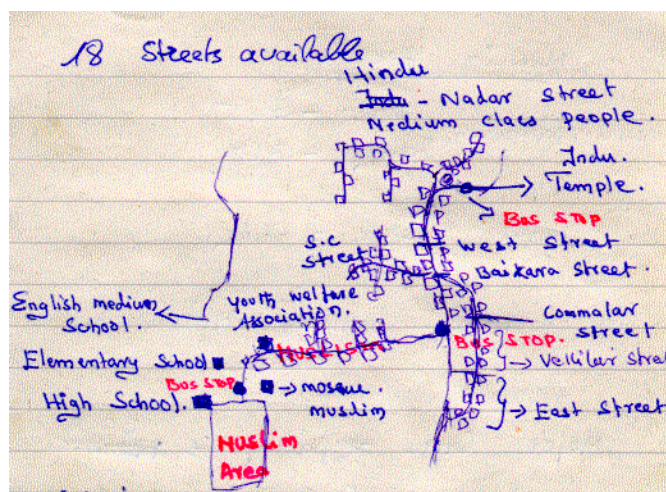 18 Streets available
Hindu
Indu - Nadar Street
Medium class people.
Indu.
Temple.
Bus STOP
S.C
Street
West Street
Baikara Street.
English medium
School.
Youth welfare
Association.
Commalar
Street
Muslim
Bus STOP.
Vellilar Street
Elementary School
Bus STOP
mosque.
muslim
High School.
East Street
Muslim
Area